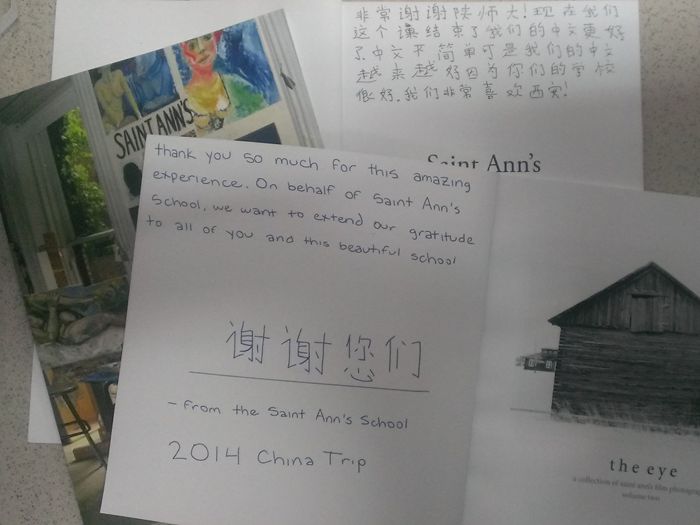 非常谢谢陕师大!现在我们
这个课结束了我们的中文更好
了中文不简单可是我们的中文
越来越好因为你们的学校
很好.我们非常喜欢西安!
SAINT ANN'S
Saint Ann's
thank you so much for this amazing
experience. On behalf of Saint Ann's
School, we want to extend our gratitude
to all of you and this beautiful school
谢谢您们
- From the Saint Ann's School
2014 China Trip
the eye
a collection of saint ann's film photography
volume two